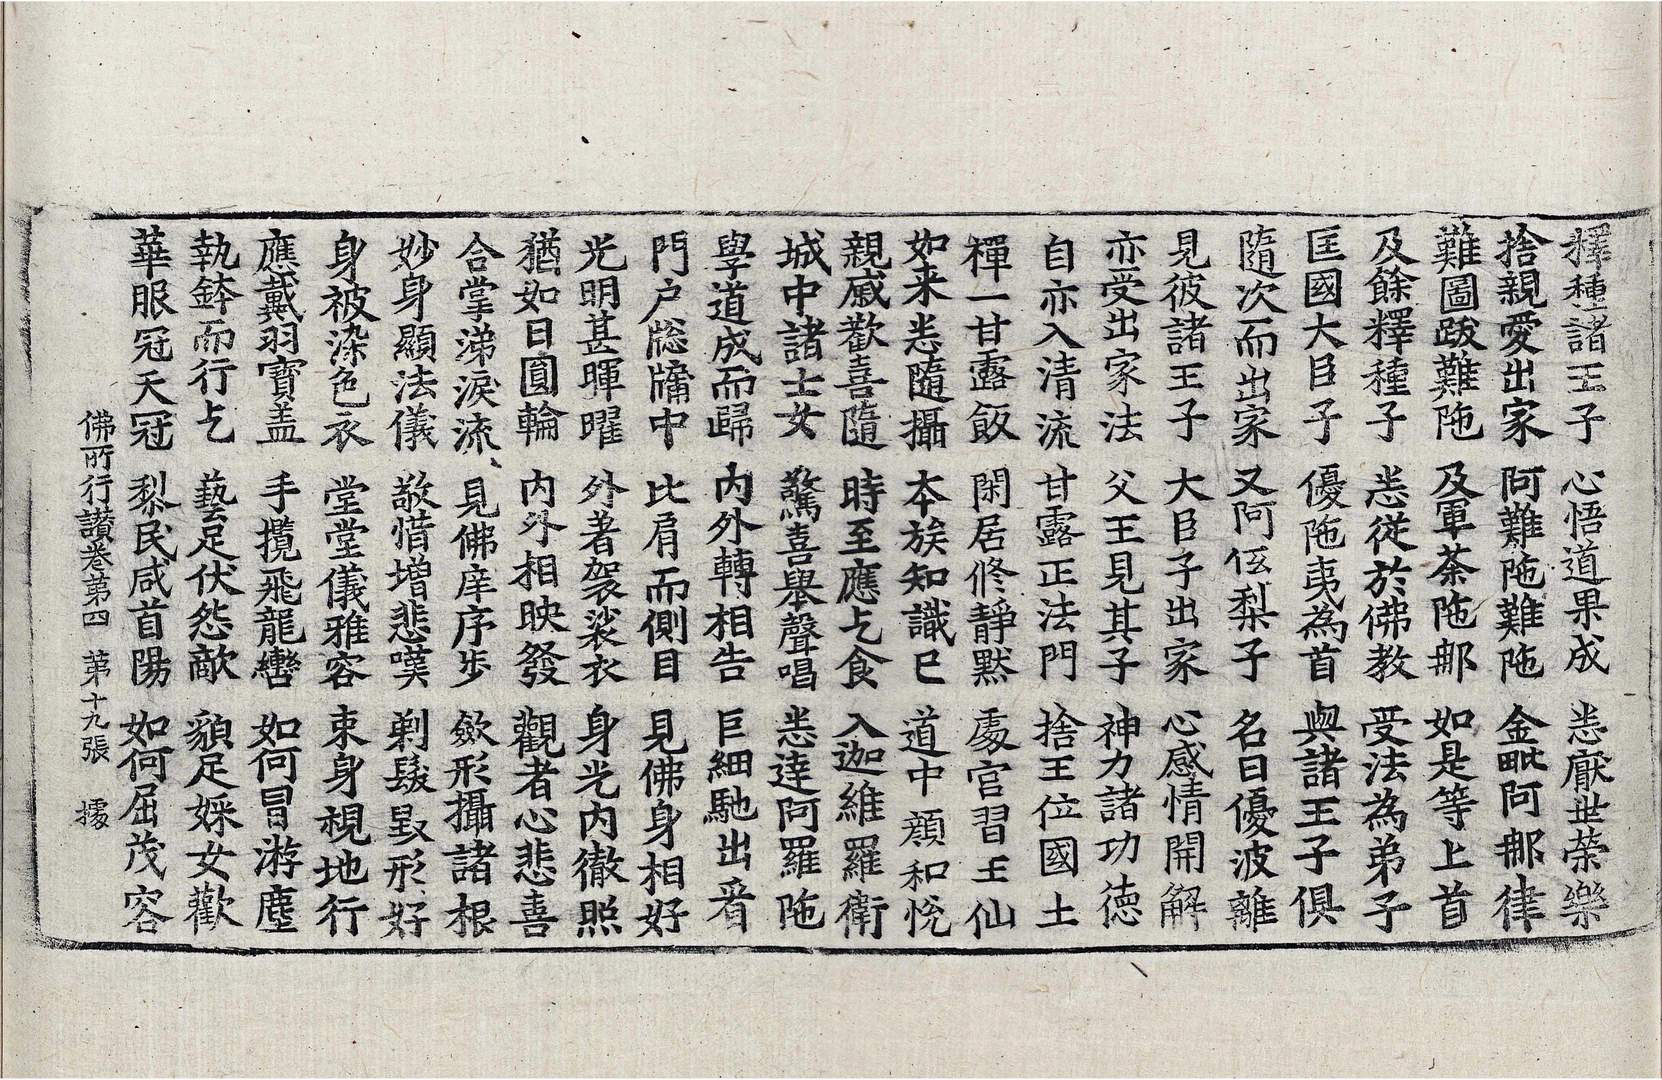 釋種諸王子 心悟道果成 悉厭世榮樂
捨親愛出家 阿難陁難陁 金毗阿那律
難圖跋難陁 及軍荼陁那 如是等上首
及餘釋種子 悉從於佛教 受法為弟子
匡國大臣子 優陁夷為首 與諸王子俱
隨次而出家 又阿伍梨子 名曰優波離
見彼諸王子 大臣子出家 心感情開解
亦受出家法 父王見其子 神力諸功德
自亦入清流 甘露正法門 捨王位國土
禪一甘露飯 閑居修靜默 處宮習王仙
如来悉隨攝 本族知識已 道中顏和悅
親戚歡喜隨 時至應乞食 入迦維羅衛
城中諸士女 驚喜舉聲唱 悉達阿羅陁
學道成而歸 內外轉相告 巨細馳出看
門户牕牖中 比肩而側目 見佛身相好
光明甚暉曜 外著袈裟衣 身光內徹照
猶如日圓輪 內外相映發 觀者心悲喜
合掌涕淚流 見佛庠序步 斂形攝諸根
妙身顯法儀 敬惜增悲嘆 剃髮毀形好
身被染色衣 堂堂儀雅容 束身視地行
應戴羽寶盖 手攬飛龍轡 如何冒游塵
執鉢而行乞 藝足伏怨敵 貌足婇女歡
華服冠天冠 黎民咸首陽 如何屈茂容
佛所行讃卷第四 第十九張 㨿